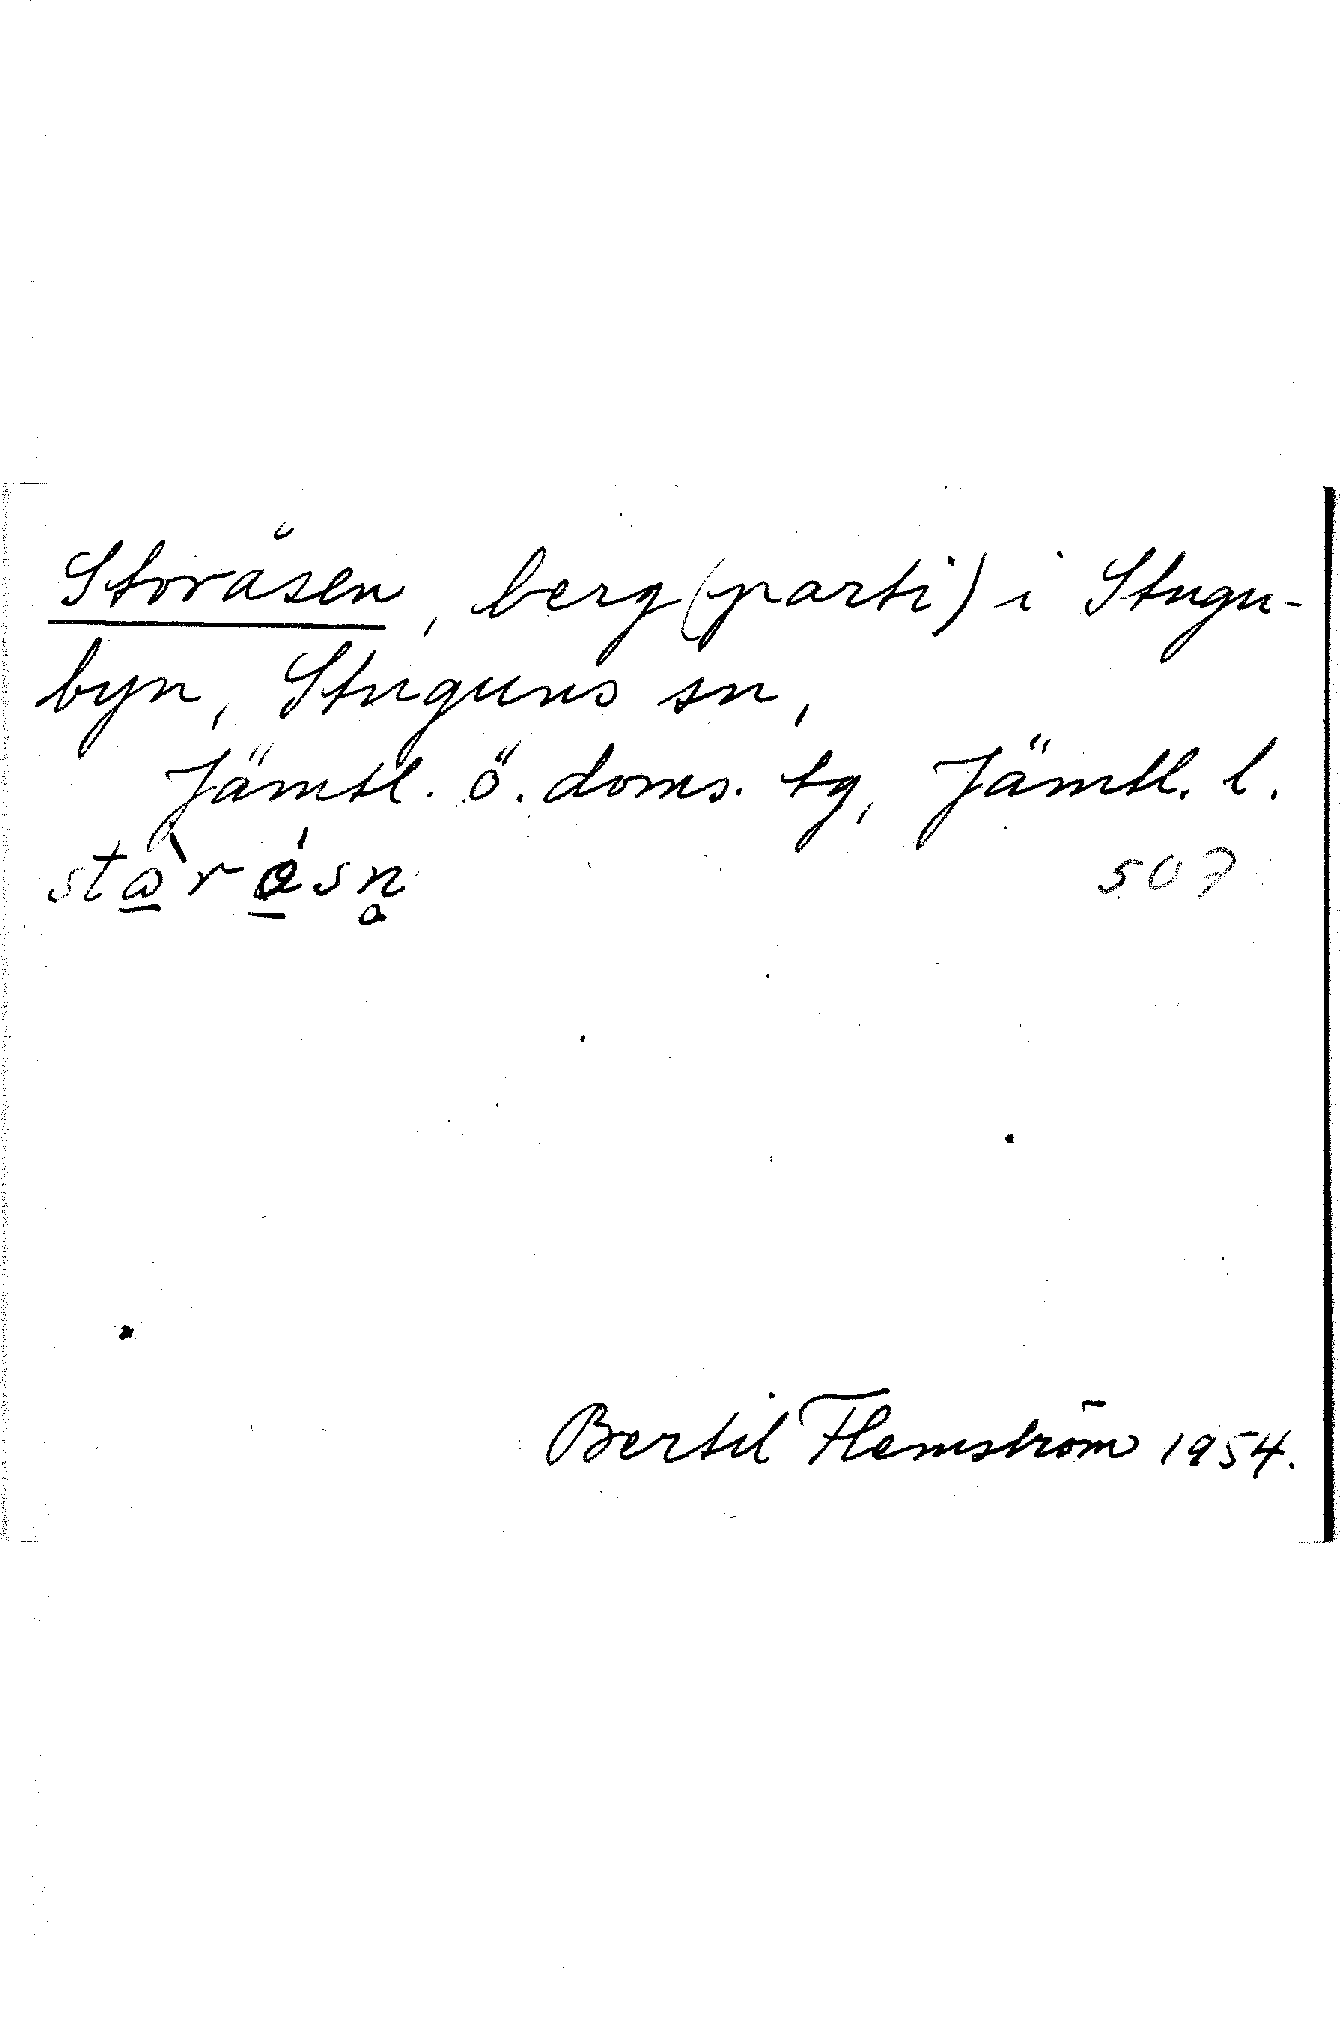 Storåsen, berg (parti) i Stugu-
byn, Stuguns sn,
Jämtl. ö. doms. tg, Jämtl. l.
507
Bertil Flemström 1954.